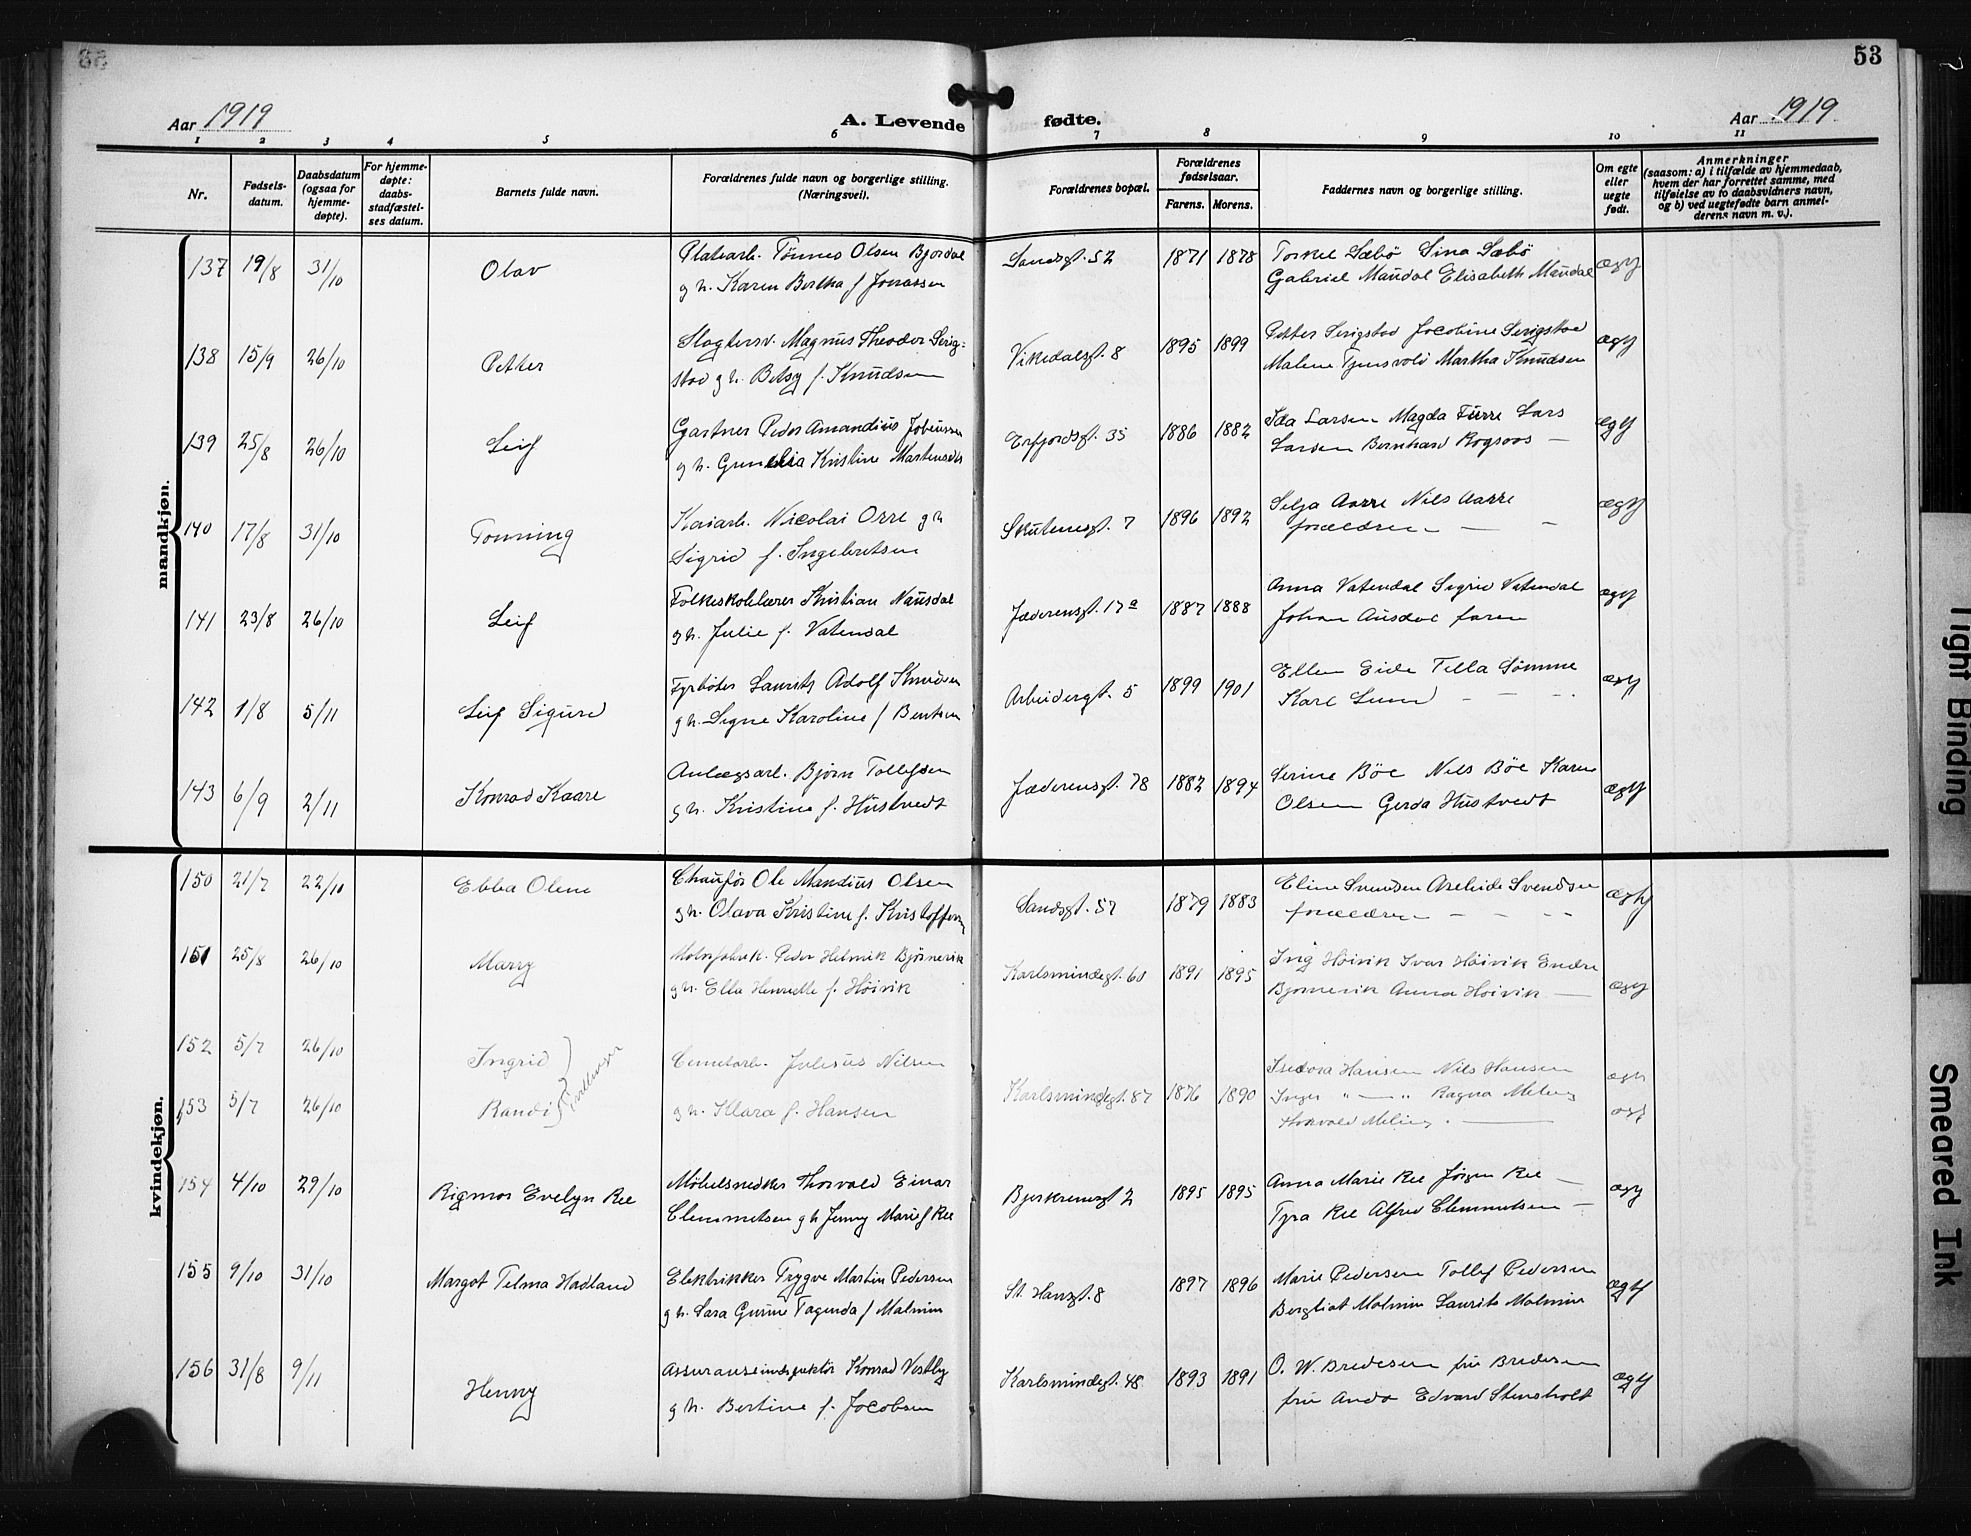 53
Aar 1919
A. Levende fødte.
Aar 1919
1 2 3 4 5 6 7 8 9 10 11
Nr.
Fødsels-
datum.
Daabsdatum
(ogsaa for
hjemme-
døpte).
For hjemme-
døpte:
daabs-
stadfæstel-
ses datum.
Barnets fulde navn.
Forældrenes fulde navn og borgerlige stilling.
(Næringsvei).
Forældrenes bopæl.
Forældrenes
fødselsaar.
Farens. Morens.
Faddernes navn og borgerlige stilling.
Om egte
eller
uegte
født.
Anmerkninger
(saasom: a) i tilfælde av hjemmedaab,
hvem der har forrettet samme, med
tilføielse av to daabsvidners navn,
og b) ved uegtefødte barn anmel-
derens navn m. v.).
mandkjøn.
137 19/8 31/10 Olav
Platearb. Tønnes Olsen Bjordal
g. h. Karen Bertha f. Jonassen
Sandsgt. 52 1871 1878
Torkel Sæbø Sina Sæbø
Gabriel Maudal Elisabeth Maudal
138 15/9 26/10 Petter
Slagtersv. Magnus Theodor Serig-
stad g. h. Betsy f. Knudsen
Vikedalsgt. 8 1895 1899
Petter Serigstad Jacobine Serigstad
Malene Martha Knudsen
139 25/8 26/10 Leif
Gartner Peder Amandius
g. h. Kristine
Erfjordsgt. 35 1886 1882
Ida Larsen Magda Furre Lars
Larsen Bernhard
140 17/8 31/10 Tonning
Kaiarb. Nicolai Orre g. h.
Sigrid f. Ingebretsen
Skutenesgt. 7 1896 1892
Selja Aarre Nils Aarre
forældrene
141 23/8 26/10 Leif
Folkeskolelærer Kristian Nausdal
g. h. Julie f. Vatendal
Jæderensgt. 17a 1887 1888
Anna Vatendal Sigrid Vatendal
Johan faren
142 1/8 5/11 Leif Sigurd
Fyrbøter Laurits Adolf Knudsen
g. h. Signe Karoline f. Bentsen
Arbeidergt. 5 1899 1901
Ellen Eide Tella Sømme
Karl Lund
143 6/9 2/11 Konrad Kaare
Anlægsarb. Bjørn Tollefsen
g. h. Kristine f. Hustvedt
Jæderensgt. 78 1882 1894
Serine Bøe Nils Bøe Karen
Olsen Gerda Hustvedt
kvindekjøn.
150 21/7 22/10 Ebba Olene
Chauffør Ole Mandius Olsen
g. h. Olava Kristine f. Kristoffersen
Sandsgt. 57 1879 1883
Eline Svendsen Svendsen
forældrene
151 25/8 26/10 Marry
Peder Helmik Bjørnevik
g. h. Ella Henriette f. Høivik
Karlsmindegt. 60 1891 1895
Høivik Ivar Høivik Endre
Bjørnevik Anna Høivik
152 5/7 26/10 Ingrid
153 5/7 26/10 Randi
Tvillinger
Cementarb. Julius Nilsen
g. h. Klara f. Hansen
Karlsmindegt. 87 1876 1890
Isedora Hansen Nils Hansen
Inger " " Ragna Meling
Thorvald Meling
154 4/10 29/10 Rigmor Evelyn Ree
Møbelsnedker Thorvald Einar
Clemmetsen g h Jenny Marie f Ree
Bjerkreimsgt 2 1895 1895
Anna Marie Ree Jørgen Ree
Tyra Ree Alfred Clemmetsen
155 9/10 31/10 Margot Telma Hadland
Elektrikker Trygve Martin Pedersen
g. h. Sara Gurine Tagenda f Malmin
St. Hansgt. 8 1897 1896
Marie Pedersen Tollef Pedersen
Bergliot Malmin Laurits Malmin
156 31/8 9/11 Henny
Assuranseinspektør Konrad Vestby
g. h. Bertine f. Jacobsen
Karlsmindegt. 48 1893 1891
O. W. Bredesen fru Bredesen
fru Anda Edvard Stensholt
Tight Binding
Smeared Ink